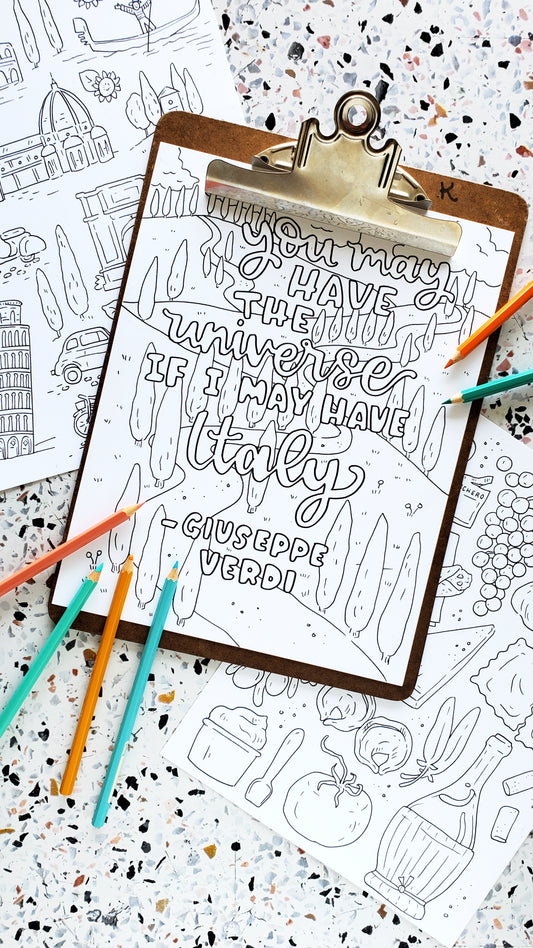 K
you may
HAVE
THE
universe
IF I MAY HAVE
Italy
-GIUSEPPE
VERDI